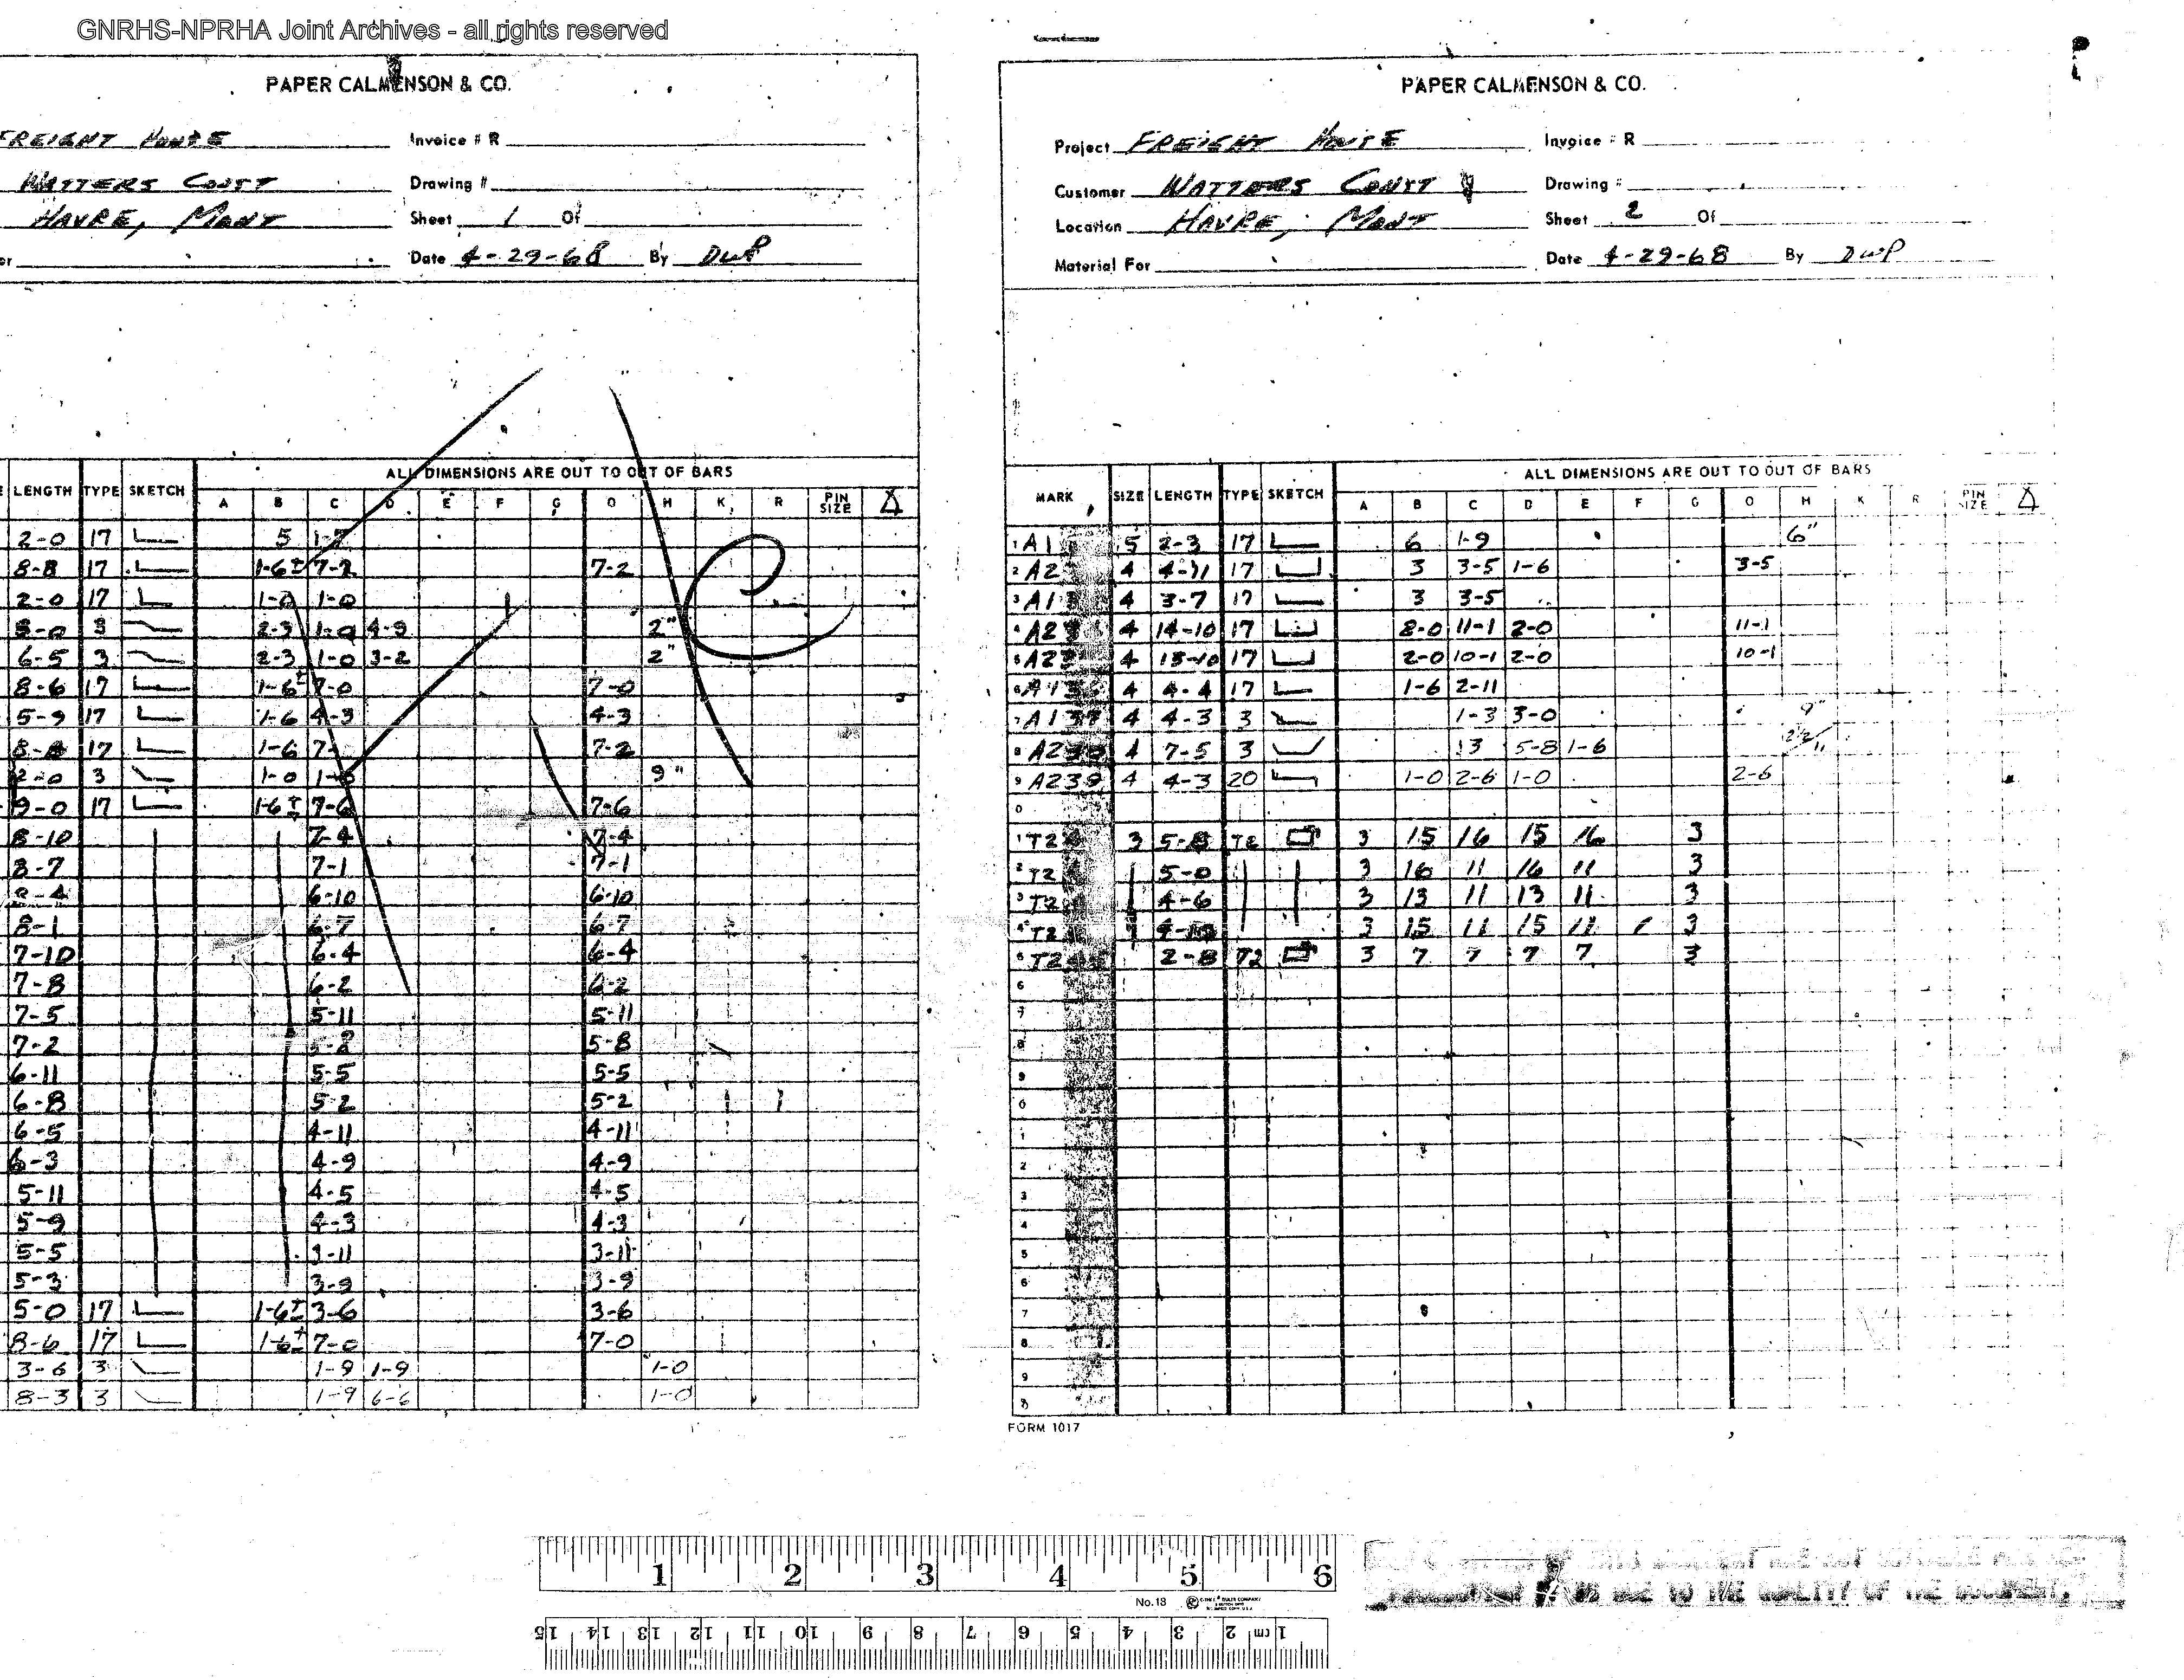 GNRHS-NPRHA Joint Archives - all rights reserved
PAPER CALMENSON & CO.
FREIGHT HOUSE Invoice # R
WATTERS CONST Drawing #
HAVRE, MONT Sheet 1 Of
Date 4-29-68 By DWP
ALL DIMENSIONS ARE OUT TO OUT OF BARS
LENGTH TYPE SKETCH A B C D E F G O H K R PIN SIZE
2-0 17 5
8-8 17 1-6± 7-2 7-2
2-0 17 1-0 1-0
8-0 3 2-3 1-0 4-9 2"
6-5 3 2-3 1-0 3-2 2"
8-6 17 1-6± 7-0 7-0
5-9 17 1-6 4-3 4-3
17 1-6 7-2
2-0 3 1-0 9"
9-0 17 1-6± 7-6 7-6
8-10 7-4 7-4
8-7 7-1 7-1
8-4 6-10 6-10
8-1 6-7 6-7
7-10 6-4 6-4
7-8 6-2 6-2
7-5 5-11 5-11
7-2 5-8 5-8
6-11 5-5 5-5
6-8 5-2 5-2
6-5 4-11 4-11
6-3 4-9 4-9
5-11 4-5 4-5
5-9 4-3 4-3
5-5 3-11 3-11
5-3 3-9 3-9
5-0 17 1-6± 3-6 3-6
8-6 17 1-6± 7-0 7-0
3-6 3 1-9 1-9 1-0
8-3 3 1-9 6-6 1-0
PAPER CALMENSON & CO.
Project FREIGHT HOUSE Invoice # R
Customer WATTERS CONST Drawing #
Location HAVRE, MONT Sheet 2 Of
Material For Date 4-29-68 By DWP
ALL DIMENSIONS ARE OUT TO OUT OF BARS
MARK SIZE LENGTH TYPE SKETCH A B C D E F G O H K R PIN SIZE
1 A1 5 2-3 17 6 1-9 6"
2 A2 4 4-11 17 3 3-5 1-6 3-5
3 A1 4 3-7 17 3 3-5
4 A2 4 14-10 17 2-0 11-1 2-0 11-1
5 A2 4 13-10 17 2-0 10-1 2-0 10-1
6 A136 4 4-4 17 1-6 2-11
7 A137 4 4-3 3 1-3 3-0 9"
8 A238 4 7-5 3 5-8 1-6
9 A239 4 4-3 20 1-0 2-6 1-0 2-6
0
1 T2 3 5-8 T2 3 15 16 15 16 3
2 T2 5-0 3 16 11 16 11 3
3 T2 4-6 3 13 11 13 11 3
4 T2 3 15 11 15 11 3
5 T2 2-8 T2 3 7 7 7 7 3
6
7
8
9
0
1
2
3
4
5
6
7
8
9
FORM 1017
1 2 3 4 5 6
No. 18
15 14 13 12 11 10 9 8 7 6 5 4 3 2 1 cm
DUE TO THE QUALITY OF THE DOCUMENT.